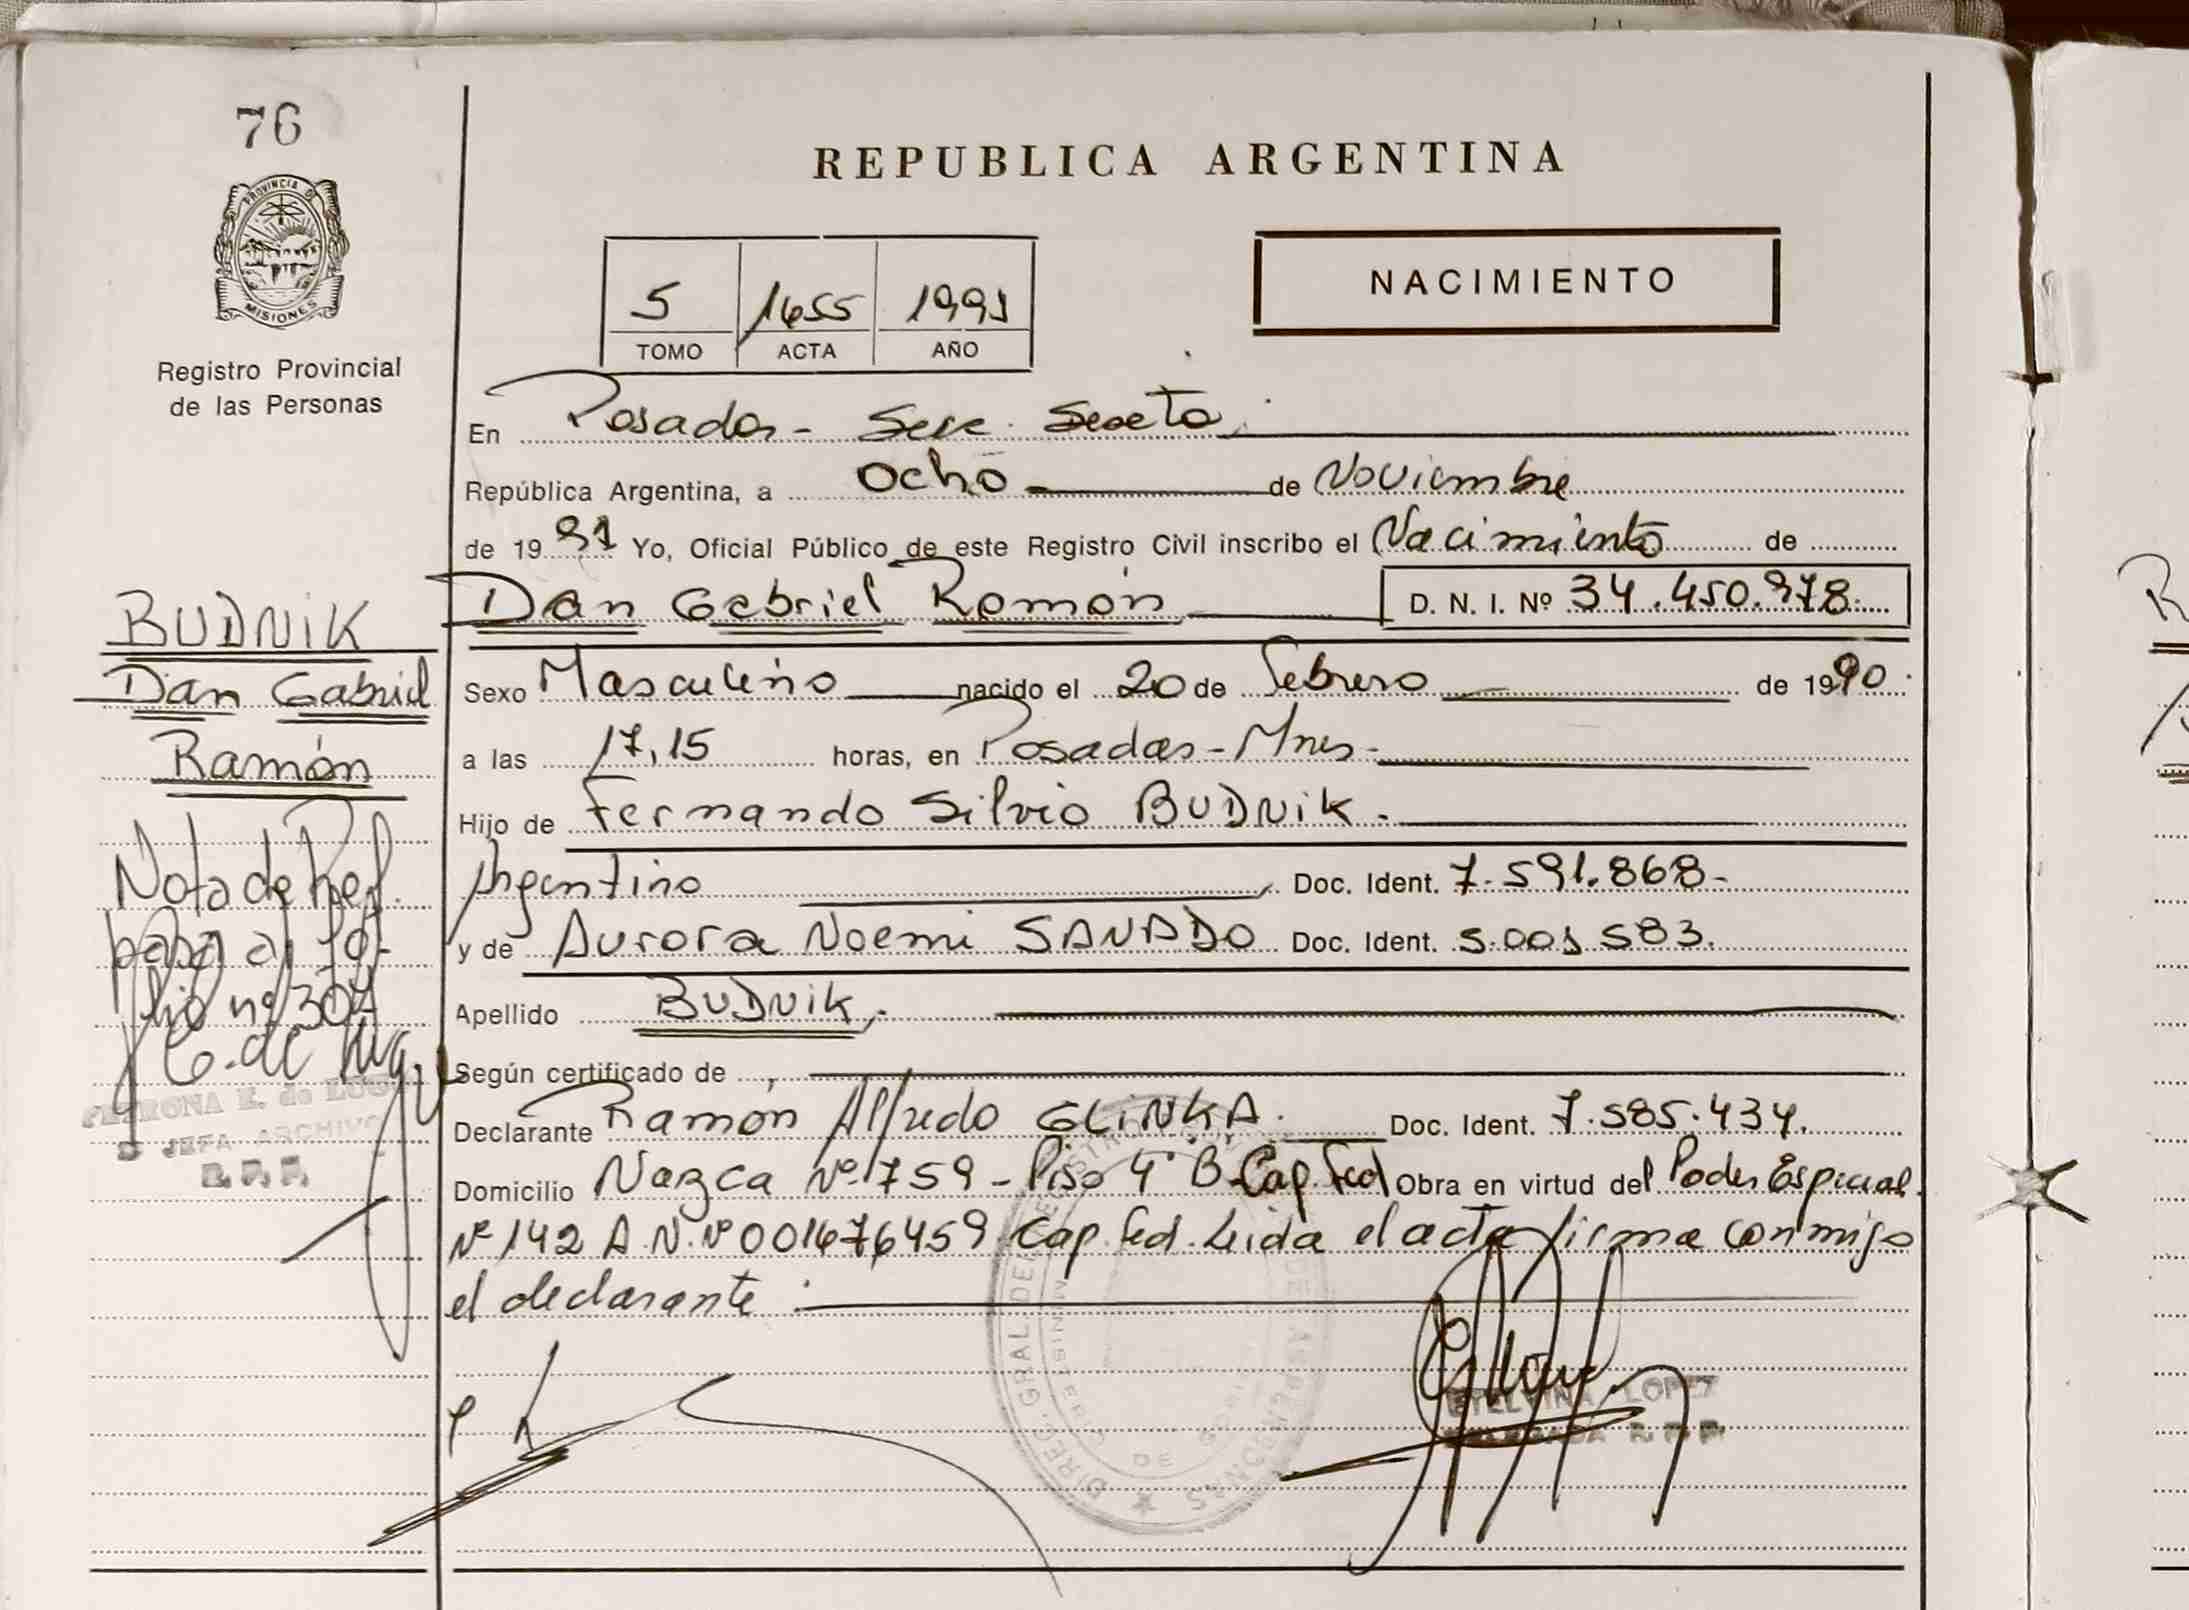 76
PROVINCIA DE
MISIONES
Registro Provincial
de las Personas
BUDNIK
Dan Gabriel
Ramón
Nota de Ref.
pasa al fo-
lio nº 307
PETRONA E. de LUGO
JEFA ARCHIVO
R. P. P.
REPUBLICA ARGENTINA
5 1455 1991
TOMO ACTA AÑO
NACIMIENTO
En Posadas - Secc. Sexta
República Argentina, a Ocho de Noviembre
de 1991 Yo, Oficial Público de este Registro Civil inscribo el Nacimiento de
Dan Gabriel Ramón D. N. I. Nº 34.450.978.
Sexo Masculino nacido el 20 de Febrero de 1990.
a las 17,15 horas, en Posadas - Mnes -
Hijo de Fernando Silvio BUDNIK.
Argentino Doc. Ident. 7.591.868-
y de Aurora Noemi SANADO Doc. Ident. 5.001.583.
Apellido BUDNIK.
Según certificado de
Declarante Ramón Alfredo GLINKA. Doc. Ident. 7.585.434.
Domicilio Nazca Nº 1759 - Piso 4º B - Cap Fed Obra en virtud del Poder Especial
Nº 142 A.N. Nº 001676459 Cap. Fed. Leida el acta firma conmigo
el declarante
DIREC. GRAL. DEL REGISTRO DE LAS PERSONAS
ETELVINA LOPEZ
R. P. P.